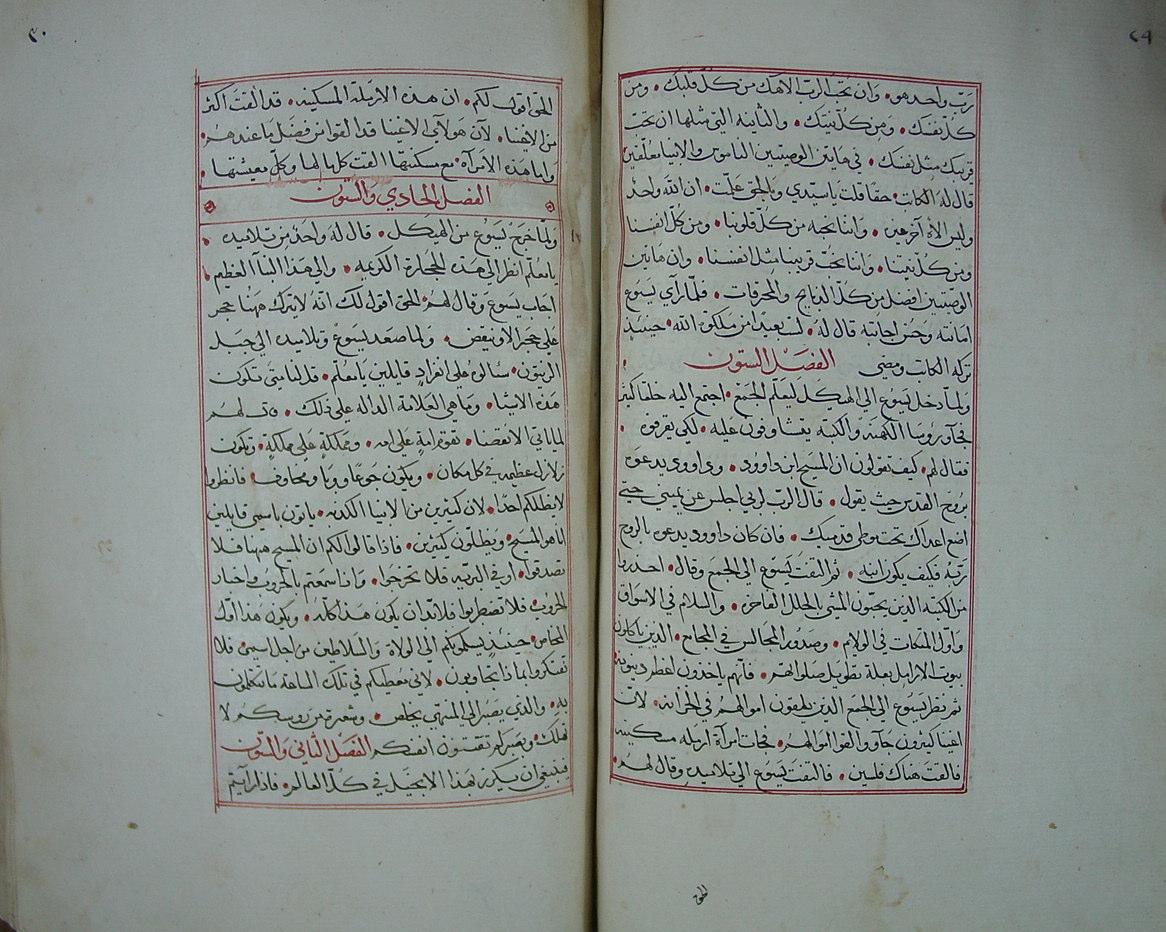 ٤٩
ربّ واحد هو • وَان تحبّ الربّ الاهك من كل قلبك • ومن
كلّ نفسك • ومِن كلّ نيتك • والثانيه التي مثلها ان تحبّ
قريبك مثل نفسك • في هاتين الوصيتين الناموس والانبيا معلّقين
قال لهُ الكاتب • حقا قلت ياسيّدي وبالحق علمت • ان الله واحدٌ
وليس الاهٌ آخر غيره • واننا نحبه من كلّ قلوبنا • ومن كلّ انفسنا
ومن كلّ نيتنا • واننا نحبّ قريبنا مثل انفسنا • وان هاتين
الوصيتين افضل من كلّ الدبايح والمحرقات • فلمّا رأي يسوع
امانته وحسن اجابته قال لهُ • لست بعيدًا من ملكوت الله • حينئذٍ
تركه الكاتب ومضي الفصَل الستون
ولمّا دخل يَسوع الي الهيكل ليعَلم الجمَع • اجتمع اليه خلقا كثير
فجآو روسا الكهنه والكتبه يتشاوفون عليه • لكي يغرقوه •
فقال لهم • كيف تقولون ان المسيح ابن داوود • وداوود يدعوه
بروح القدس حيث يقول • قال الرب لربي اجلس عن يميني حتي
اضع اعداك تحت موطي قدميك • فان كان داوود يدعوه بالروح
ربّهُ فكيف يكون ابنه • ثم التفت يَسوع الي الجمع وقال • احدروا
من الكتبه الدين يحبّون المشي بالحلل الفاخره • والسلام في الاسواق
واوّل المتكات في الولايم • وصَدور المجالس في المجامع • الدين ياكلون
بيوت الارامل بعلة تطويل صلواتهم • فانهم ياخدون اعظم دينونه
ثم نظر يَسوع الي الجمع الدين يلقون اموالهم في الخزانه • لان
اغنيا كثيرون جآو والقوا اموالهم • فجات امرآة ارمله مسكينه
فالقت هناك فلسين • فالتفت يَسوع الي تلاميده وقال لهم •
الحق
٥٠
الحق اقول لكم • ان هده الارملة المسكينه • قد القت اكثر
من الاغنيا • لآن هولآي الاغنيا قد القوا من فضل ما عندهم •
وَاما هَده الامرآة • مع مسكنتها القت كل ما لها وكلّ معيشتها •
الفصَل الحادي وَالستون
ولمّا خرج يَسوع من الهيَكل • قال لهُ واحدٌ من تلاميده •
يا معَلم انظر الي هده الحجارة الكريمه • والي هَدا البنآ العظيم •
اجاب يسوع وقال لهم • الحق اقول لك انهُ لا يترك هَهنا حجر
علي حجر الاّ وينقض • ولما صعد يَسوع وتلاميده الي جبَل
الزيتون • سَالوهُ علي انفرادٍ قايلين يا معَلم • قل لنا متيَ تكون
هَده الاشيا • وما هي العَلامة الداله علي دَلك • وتي لهم
لما ياتي الانقضا • تقوم امةٍ علي امه • ومملكةٍ علي مملكةٍ • وتكون
زلازل عظيمه في كل مكان • ويكون جوعًا ووبا ومخاوف • فانظروا
لا يضلكم احدٌ • لان كثيرين من الانبيا الكدبه • ياتون باسمي قايلين
انا هو المسَيح • ويضلّون كثيرين • فادا قالوا لكم ان المسيح ههنا فلا
تصدقوا • او في البريه فلا تخرجوا • وادا سمعَتم بالحروب واخبار
الحروب • فلا تضطربوا فلا بدّ ان يكون هَدا كلّه • ويكون هدا اوّل
المخاض • حينئدٍ يسَلمونكم الي الولاة والسَلاطين من اجل اسمي • فلا
تفتكروا بما دا تجاوبون • لاني نعطيكم في تلك الساعَة ما تتكلمون
به • والدي يصَبر الي المنتهي يخلص • وشعرة من روسكم لا
تهلك • وبصبركم تقتنون انفسكم الفصَل الثاني وَالستون
فينبغي ان يكرز بهَدا الانجيَل في كلّ العالم • فادا رايتم